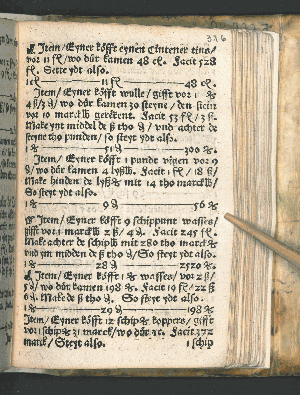 326
Item/ Eyner köfft eynen Centener tins/
vor 11 fl/ wo dür kamen 48 ct. Facit 528
fl. Sette ydt also.
1 ct 11 fl 48 ct.
Item/ Eyner köfft wulle/ gifft vor 1
4 ß/ 3 ₰/ wo dür kamen 30 steyne/ den stein
vor 10 gerekent. Facit 53 fl/ 3 ß.
Make ynt middel de ß tho ₰/ vnd achter de
steyne tho punden/ so steyt ydt also.
1 51 ₰ 300
Item/ Eyner köfft 1 punt vigen vor 9
₰/ wo dür kamen 4 lyß. Facit 1 fl/ 18 ß/
Make hinden de lyß mit 14 tho
So steyt ydt also.
1 9 ₰ 56
Item/ Eyner köfft 9 schippunt wasses/
gifft vor 1 2 ß/ 4 ₰. Facit 245 fl.
Make achter de schip mit 280 tho
vnd ym midden de ß tho ₰/ So steyt ydt also.
1 28 ₰ 2520
Item/ Eyner köfft 1 wasses/ vor 2 ß/
5 ₰/ wo dür kamen 198 . Facit 19 fl/ 22 ß
6 ₰. Make de ß tho ₰. So steyt ydt also.
1 29 ₰ 198
Item/ Eyner köfft 12 schip koppers/ gifft
vor 1 schip 31 marck/ wo dür Facit 372
marck/ Steyt also. 1 schip